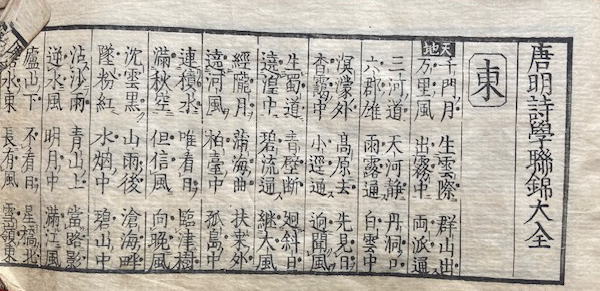 唐明詩學聯錦大全
東
天地
千門月 生雲際 群山出
万里風 出霧中 両派通
三河道 天河静 丹洞口
六郡雄 雨露通 白雲中
溟濛外 高原去 先見日
杳靄中 小逕通 迫聞風
生蜀道 青壁断 廻斜日
遠湟中 碧流通 継大風
經隴月 蒲海曲 扶桒外
遠河風 柏臺中 孤島中
連積水 唯看日 臨津樹
滿秋空 但信風 向晚風
沈雲黒 山雨後 滄海畔
墜粉紅 水烟中 碧山中
沾沙雨 青山上 當路影
逆水風 明月中 滿江風
廬山下 不看日 星橋北
水東 長有風 雪嶺東